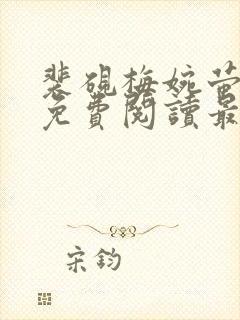 裴硯梅婉萤
免費閱讀最
宋鈞